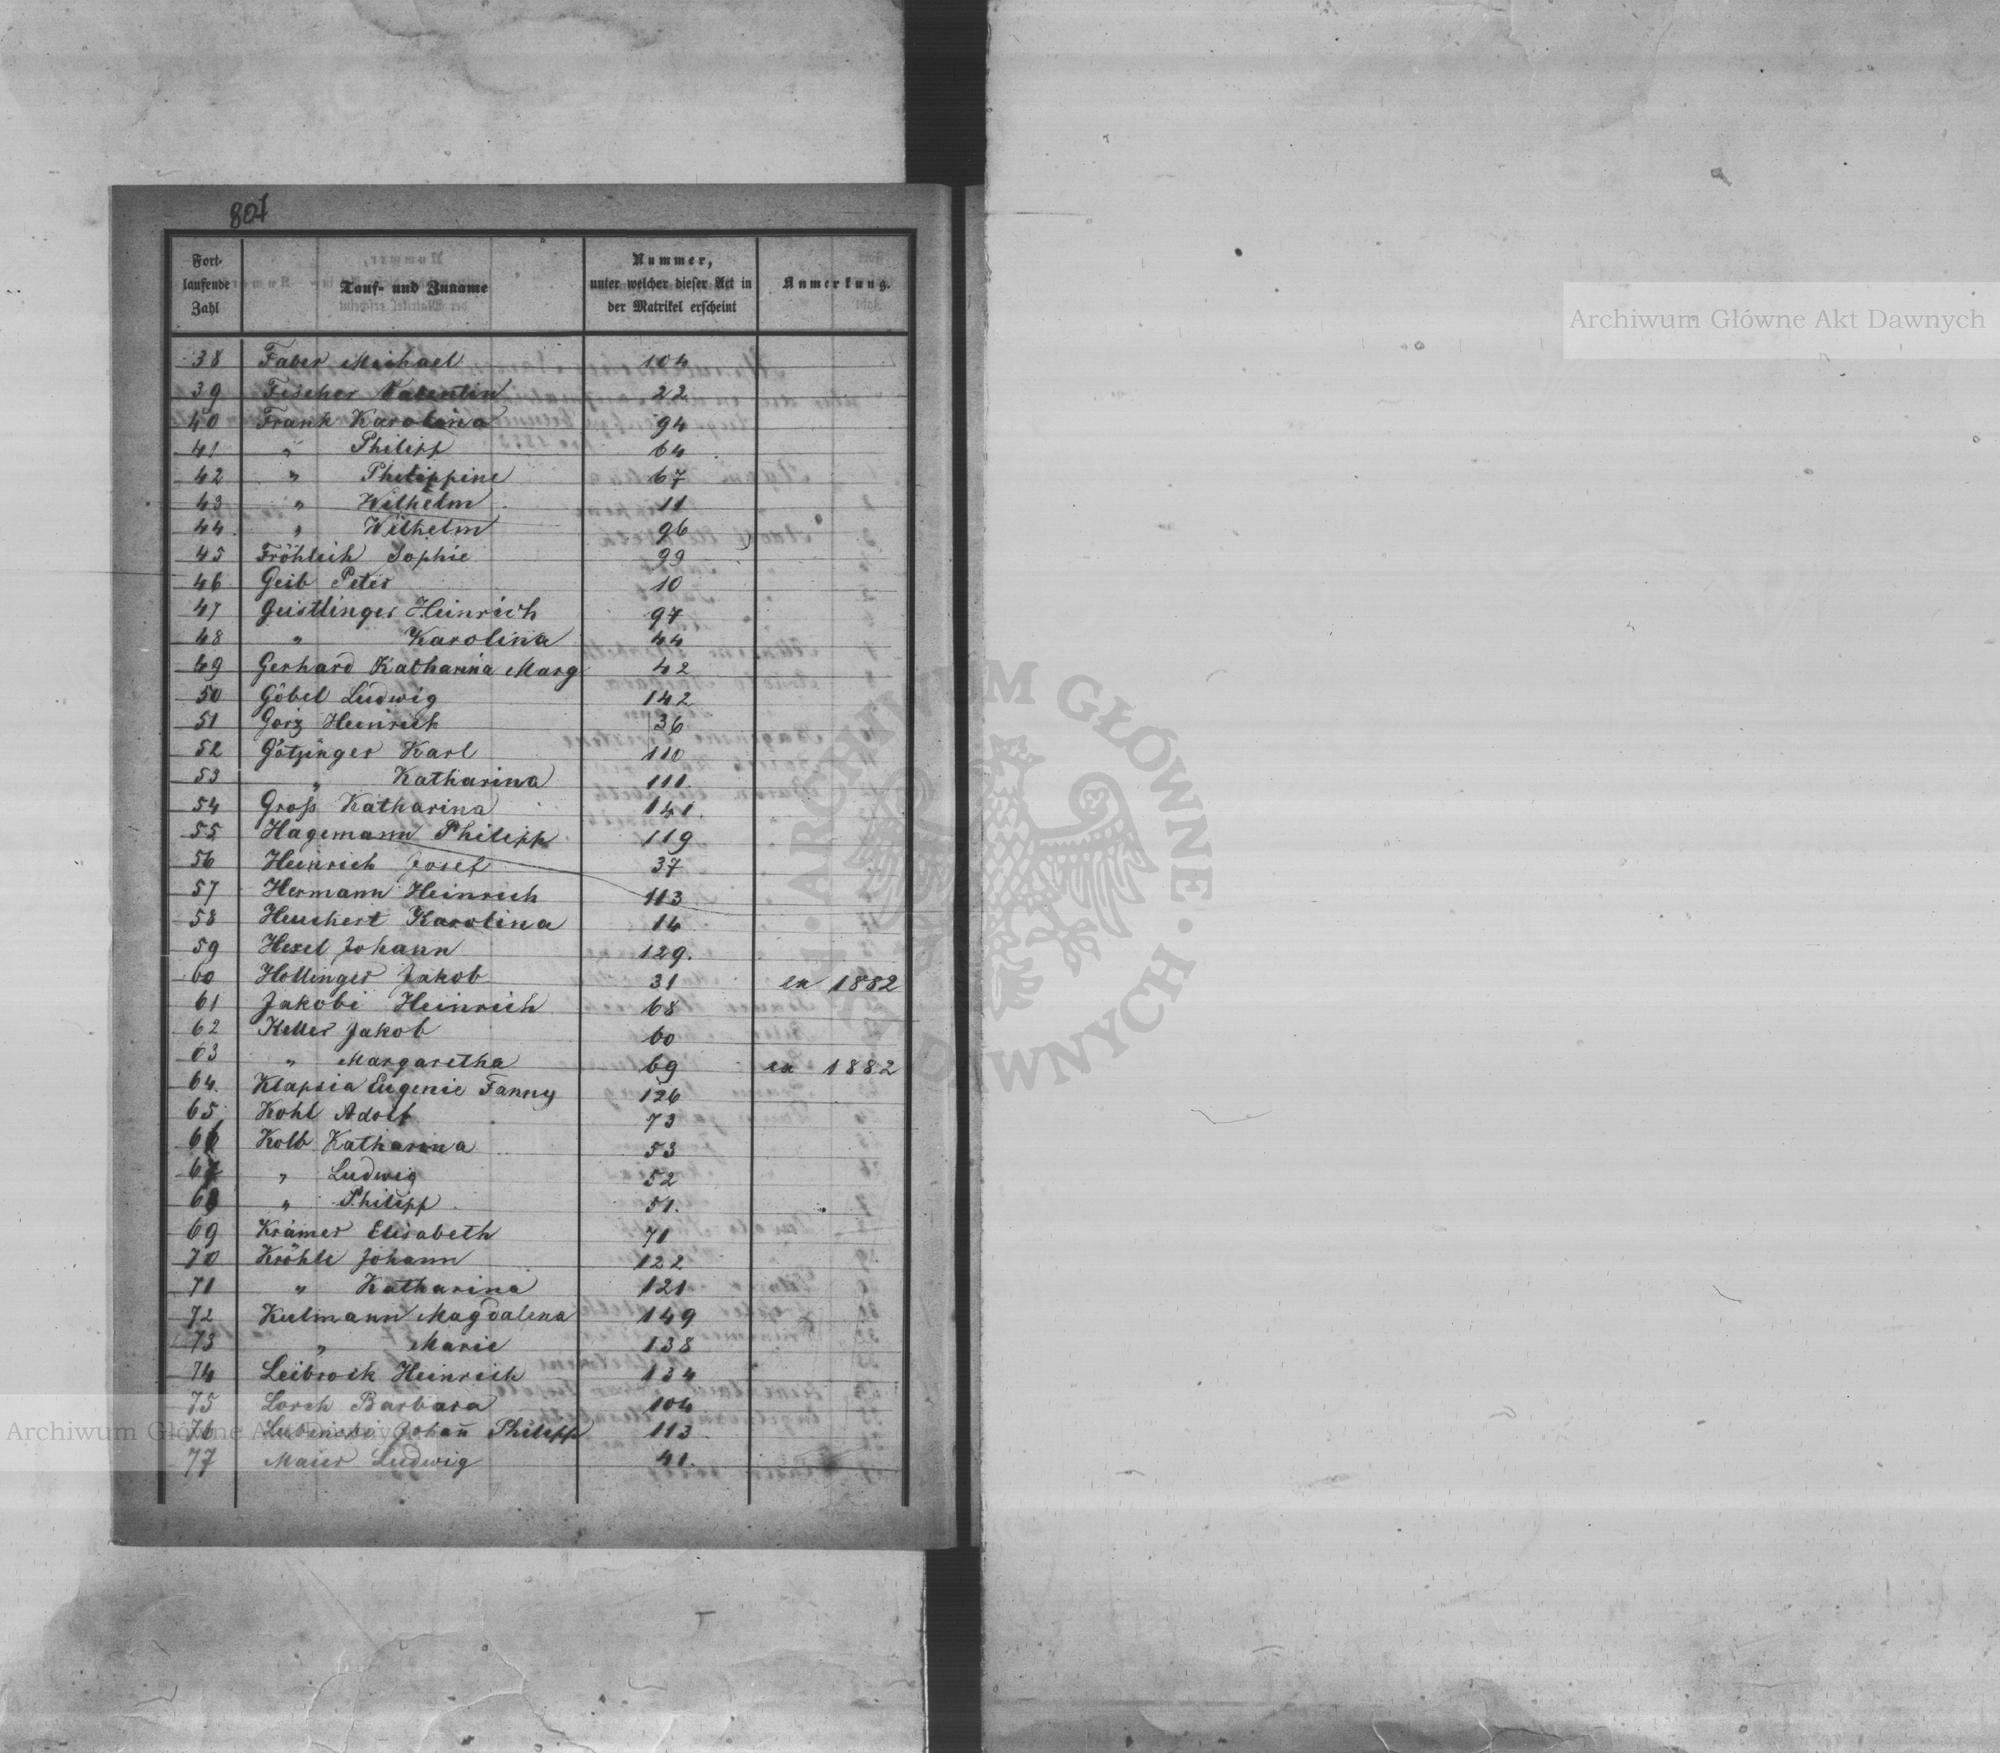 801
Fort-
laufende
Zahl
Tauf- und Zuname
Nummer,
unter welcher dieser Act in
der Matrikel erscheint
Anmerkung.
38 Faber Michael 104
39 Fischer Valentin 22
40 Frank Karolina 94
41 " Philipp 64
42 " Philippine 67
43 " Wilhelm 11
44 " Wilhelm 96
45 Fröhlich Sophie 99
46 Geib Peter 10
47 Geistlinger Heinrich 97
48 " Karolina 44
49 Gerhard Katharina Marg 42
50 Göbel Ludwig 142
51 Gorz Heinrich 36
52 Götzinger Karl 110
53 " Katharina 111.
54 Groß Katharina 141.
55 Hagemann Philipp 119
56 Heinrich Josef 37
57 Hermann Heinrich 113
58 Heuchert Karolina 14
59 Hexel Johann 129.
60 Hollinger Jakob 31 ex 1882
61 Jakobi Heinrich 68
62 Keller Jakob 60
63 " Margaretha 69 ex 1882
64 Klapsia Eugenie Fanny 126
65 Kohl Adolf 73
66 Kolb Katharina 53
67 " Ludwig 52
68 " Philipp 51.
69 Krämer Elisabeth 71
70 Kröhle Johann 122
71 " Katharina 121
72 Kulmann Magdalena 149
73 " Marie 138
74 Leibrock Heinrich 134
75 Lorch Barbara 104
76 Johan̄ Philipp 113
77 Maier Ludwig 41.
Archiwum Główne Akt Dawnych
Archiwum Główne Akt Dawnych
ARCHIWUM GŁÓWNE AKT DAWNYCH